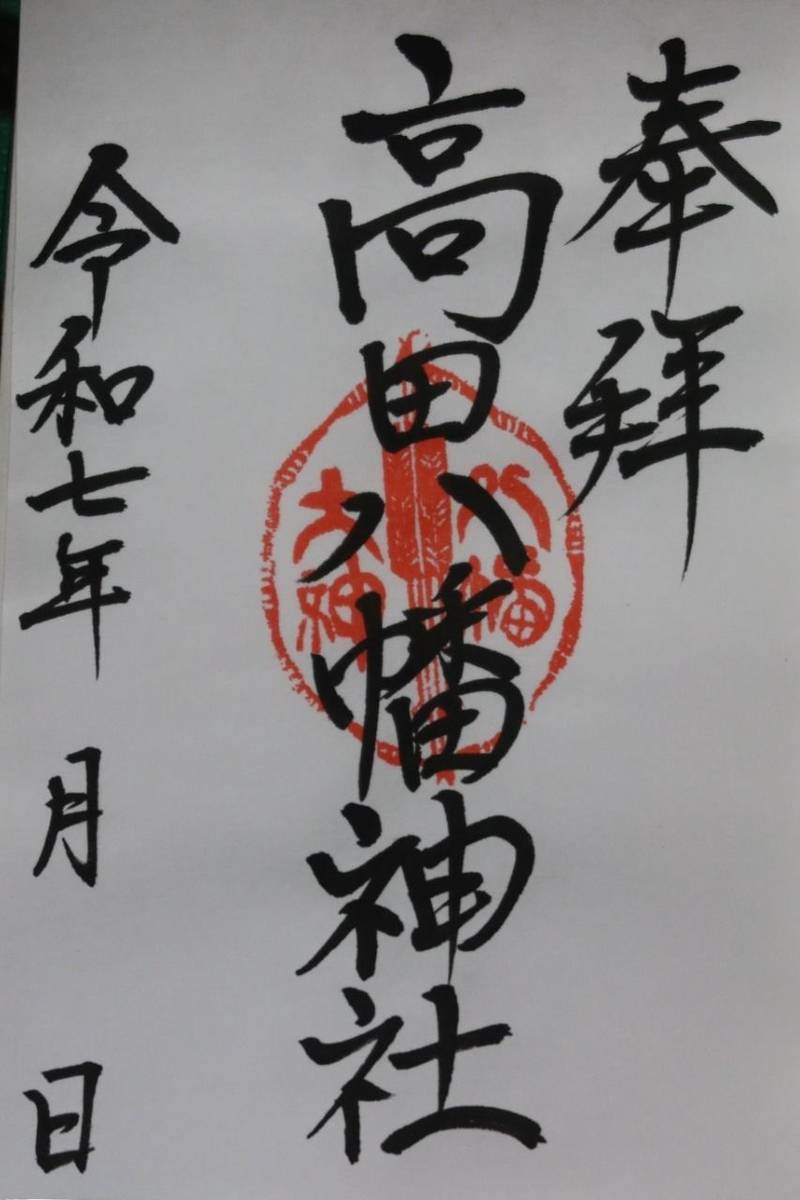 奉拝
高田八幡神社
八幡
大神
令和七年 月 日